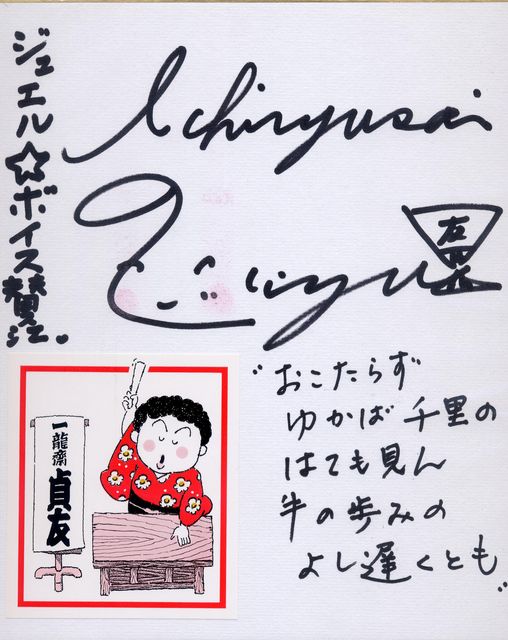 ジュエル☆ボイス賛江。
Ichiryusai
Teiyu
一龍齋
貞友
"おこたらず
ゆかば千里の
はても見ん
牛の歩みの
よし遅くとも"